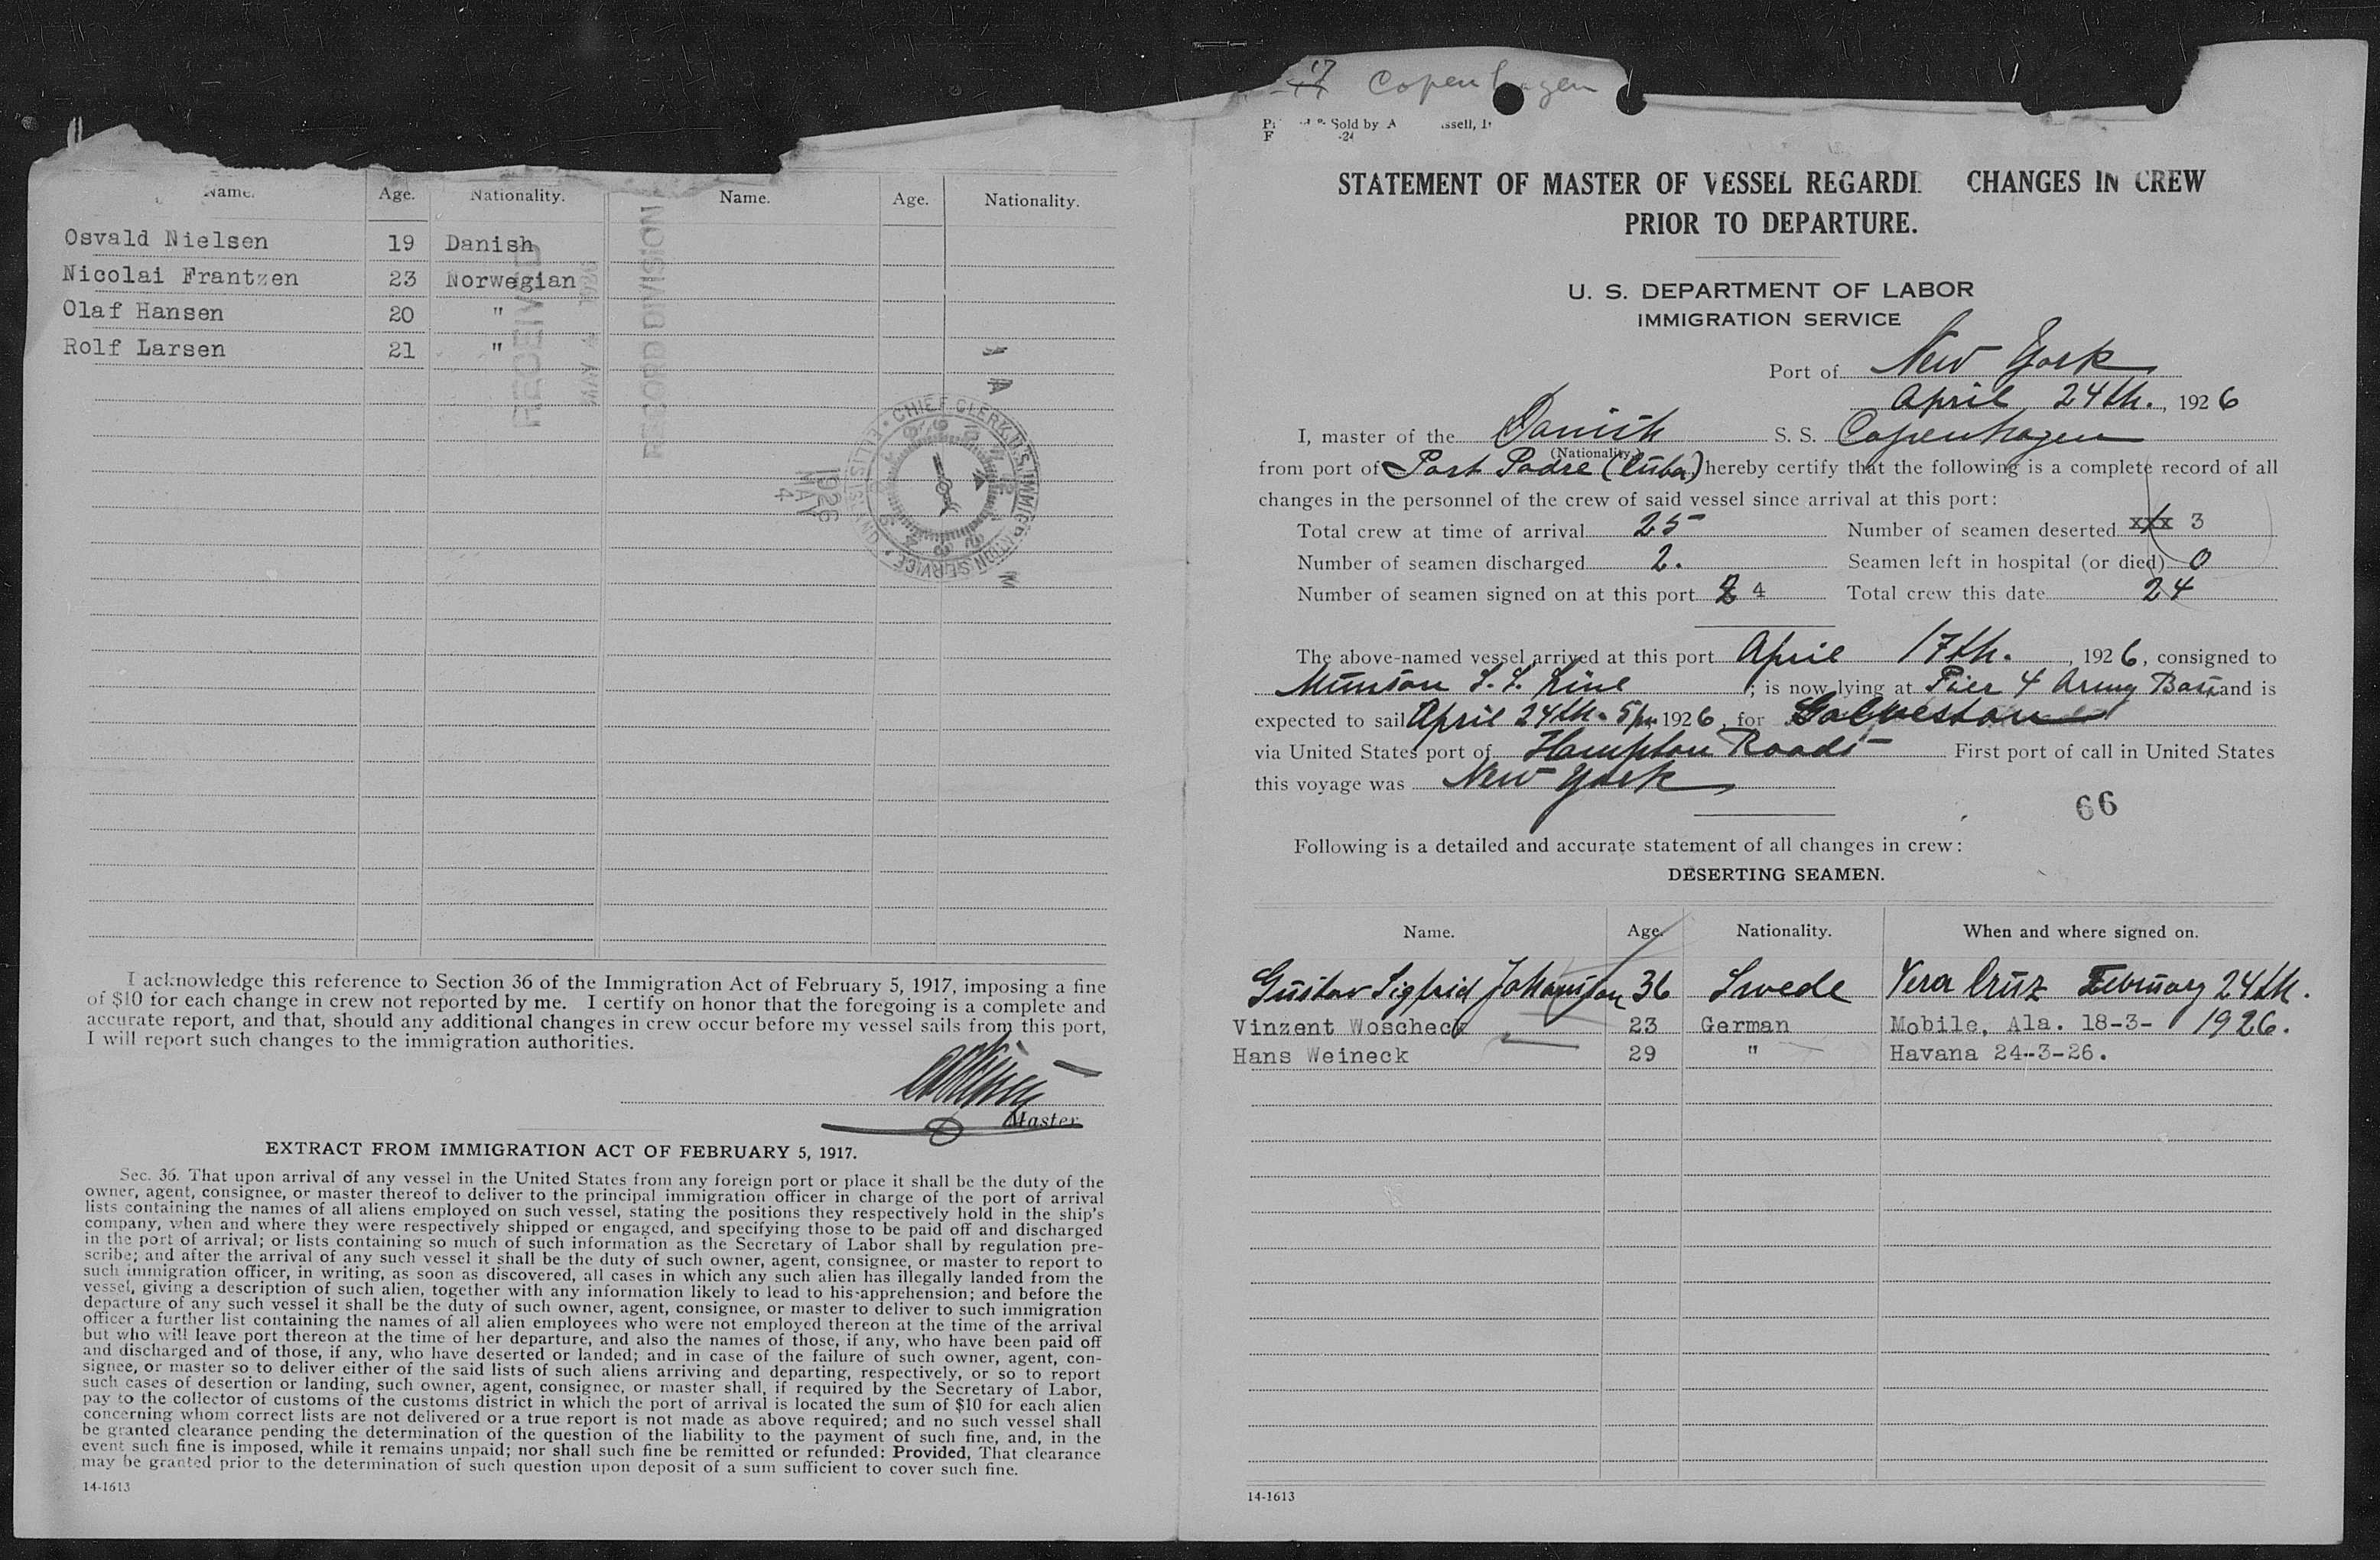 Name. Age. Nationality. Name. Age. Nationality.
Osvald Nielsen 19 Danish
Nicolai Frantzen 23 Norwegian
Olaf Hansen 20 "
Rolf Larsen 21 "
RECEIVED
RECORD DIVISION
CHIEF CLERK, U.S. IMMIGRATION SERVICE • ELLIS ISLAND •
1926
MAY
4
I acknowledge this reference to Section 36 of the Immigration Act of February 5, 1917, imposing a fine
of $10 for each change in crew not reported by me. I certify on honor that the foregoing is a complete and
accurate report, and that, should any additional changes in crew occur before my vessel sails from this port,
I will report such changes to the immigration authorities.
Master
EXTRACT FROM IMMIGRATION ACT OF FEBRUARY 5, 1917.
Sec. 36. That upon arrival of any vessel in the United States from any foreign port or place it shall be the duty of the
owner, agent, consignee, or master thereof to deliver to the principal immigration officer in charge of the port of arrival
lists containing the names of all aliens employed on such vessel, stating the positions they respectively hold in the ship's
company, when and where they were respectively shipped or engaged, and specifying those to be paid off and discharged
in the port of arrival; or lists containing so much of such information as the Secretary of Labor shall by regulation pre-
scribe; and after the arrival of any such vessel it shall be the duty of such owner, agent, consignee, or master to report to
such immigration officer, in writing, as soon as discovered, all cases in which any such alien has illegally landed from the
vessel, giving a description of such alien, together with any information likely to lead to his-apprehension; and before the
departure of any such vessel it shall be the duty of such owner, agent, consignee, or master to deliver to such immigration
officer a further list containing the names of all alien employees who were not employed thereon at the time of the arrival
but who will leave port thereon at the time of her departure, and also the names of those, if any, who have been paid off
and discharged and of those, if any, who have deserted or landed; and in case of the failure of such owner, agent, con-
signee, or master so to deliver either of the said lists of such aliens arriving and departing, respectively, or so to report
such cases of desertion or landing, such owner, agent, consignee, or master shall, if required by the Secretary of Labor,
pay to the collector of customs of the customs district in which the port of arrival is located the sum of $10 for each alien
concerning whom correct lists are not delivered or a true report is not made as above required; and no such vessel shall
be granted clearance pending the determination of the question of the liability to the payment of such fine, and, in the
event such fine is imposed, while it remains unpaid; nor shall such fine be remitted or refunded: Provided, That clearance
may be granted prior to the determination of such question upon deposit of a sum sufficient to cover such fine.
14-1613
Copenhagen
Sold by
STATEMENT OF MASTER OF VESSEL REGARDI CHANGES IN CREW
PRIOR TO DEPARTURE.
U. S. DEPARTMENT OF LABOR
IMMIGRATION SERVICE
Port of New York
April 24th., 1926
I, master of the Danish S. S. Copenhagen
(Nationality)
from port of Port Padre (Cuba) hereby certify that the following is a complete record of all
changes in the personnel of the crew of said vessel since arrival at this port:
Total crew at time of arrival 25 Number of seamen deserted xxx 3
Number of seamen discharged 2. Seamen left in hospital (or died) 0
Number of seamen signed on at this port 4 Total crew this date 24
The above-named vessel arrived at this port April 17th. , 1926, consigned to
Munson S.S. Line ; is now lying at Pier 4 Army Base and is
expected to sail April 24th. 5pm 1926, for Galveston
via United States port of Hampton Roads First port of call in United States
this voyage was New York
66
Following is a detailed and accurate statement of all changes in crew:
DESERTING SEAMEN.
Name. Age. Nationality. When and where signed on.
Gustav Sigfrid Johansson 36 Swede Vera Cruz February 24th.
Vinzent Woscheck 23 German Mobile, Ala. 18-3- 1926.
Hans Weineck 29 " Havana 24-3-26.
14-1613